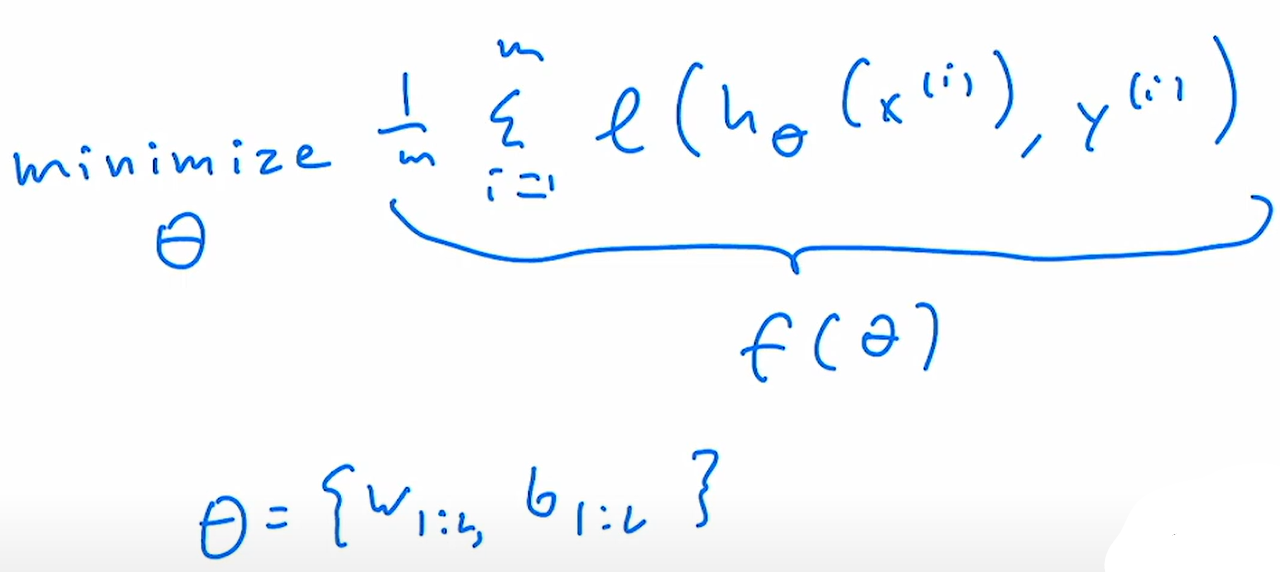 minimize 1/m Σ_{i=1}^{m} ℓ(h_θ(x^{(i)}), y^{(i)})
θ
f(θ)
θ = {W_{1:L}, b_{1:L}}